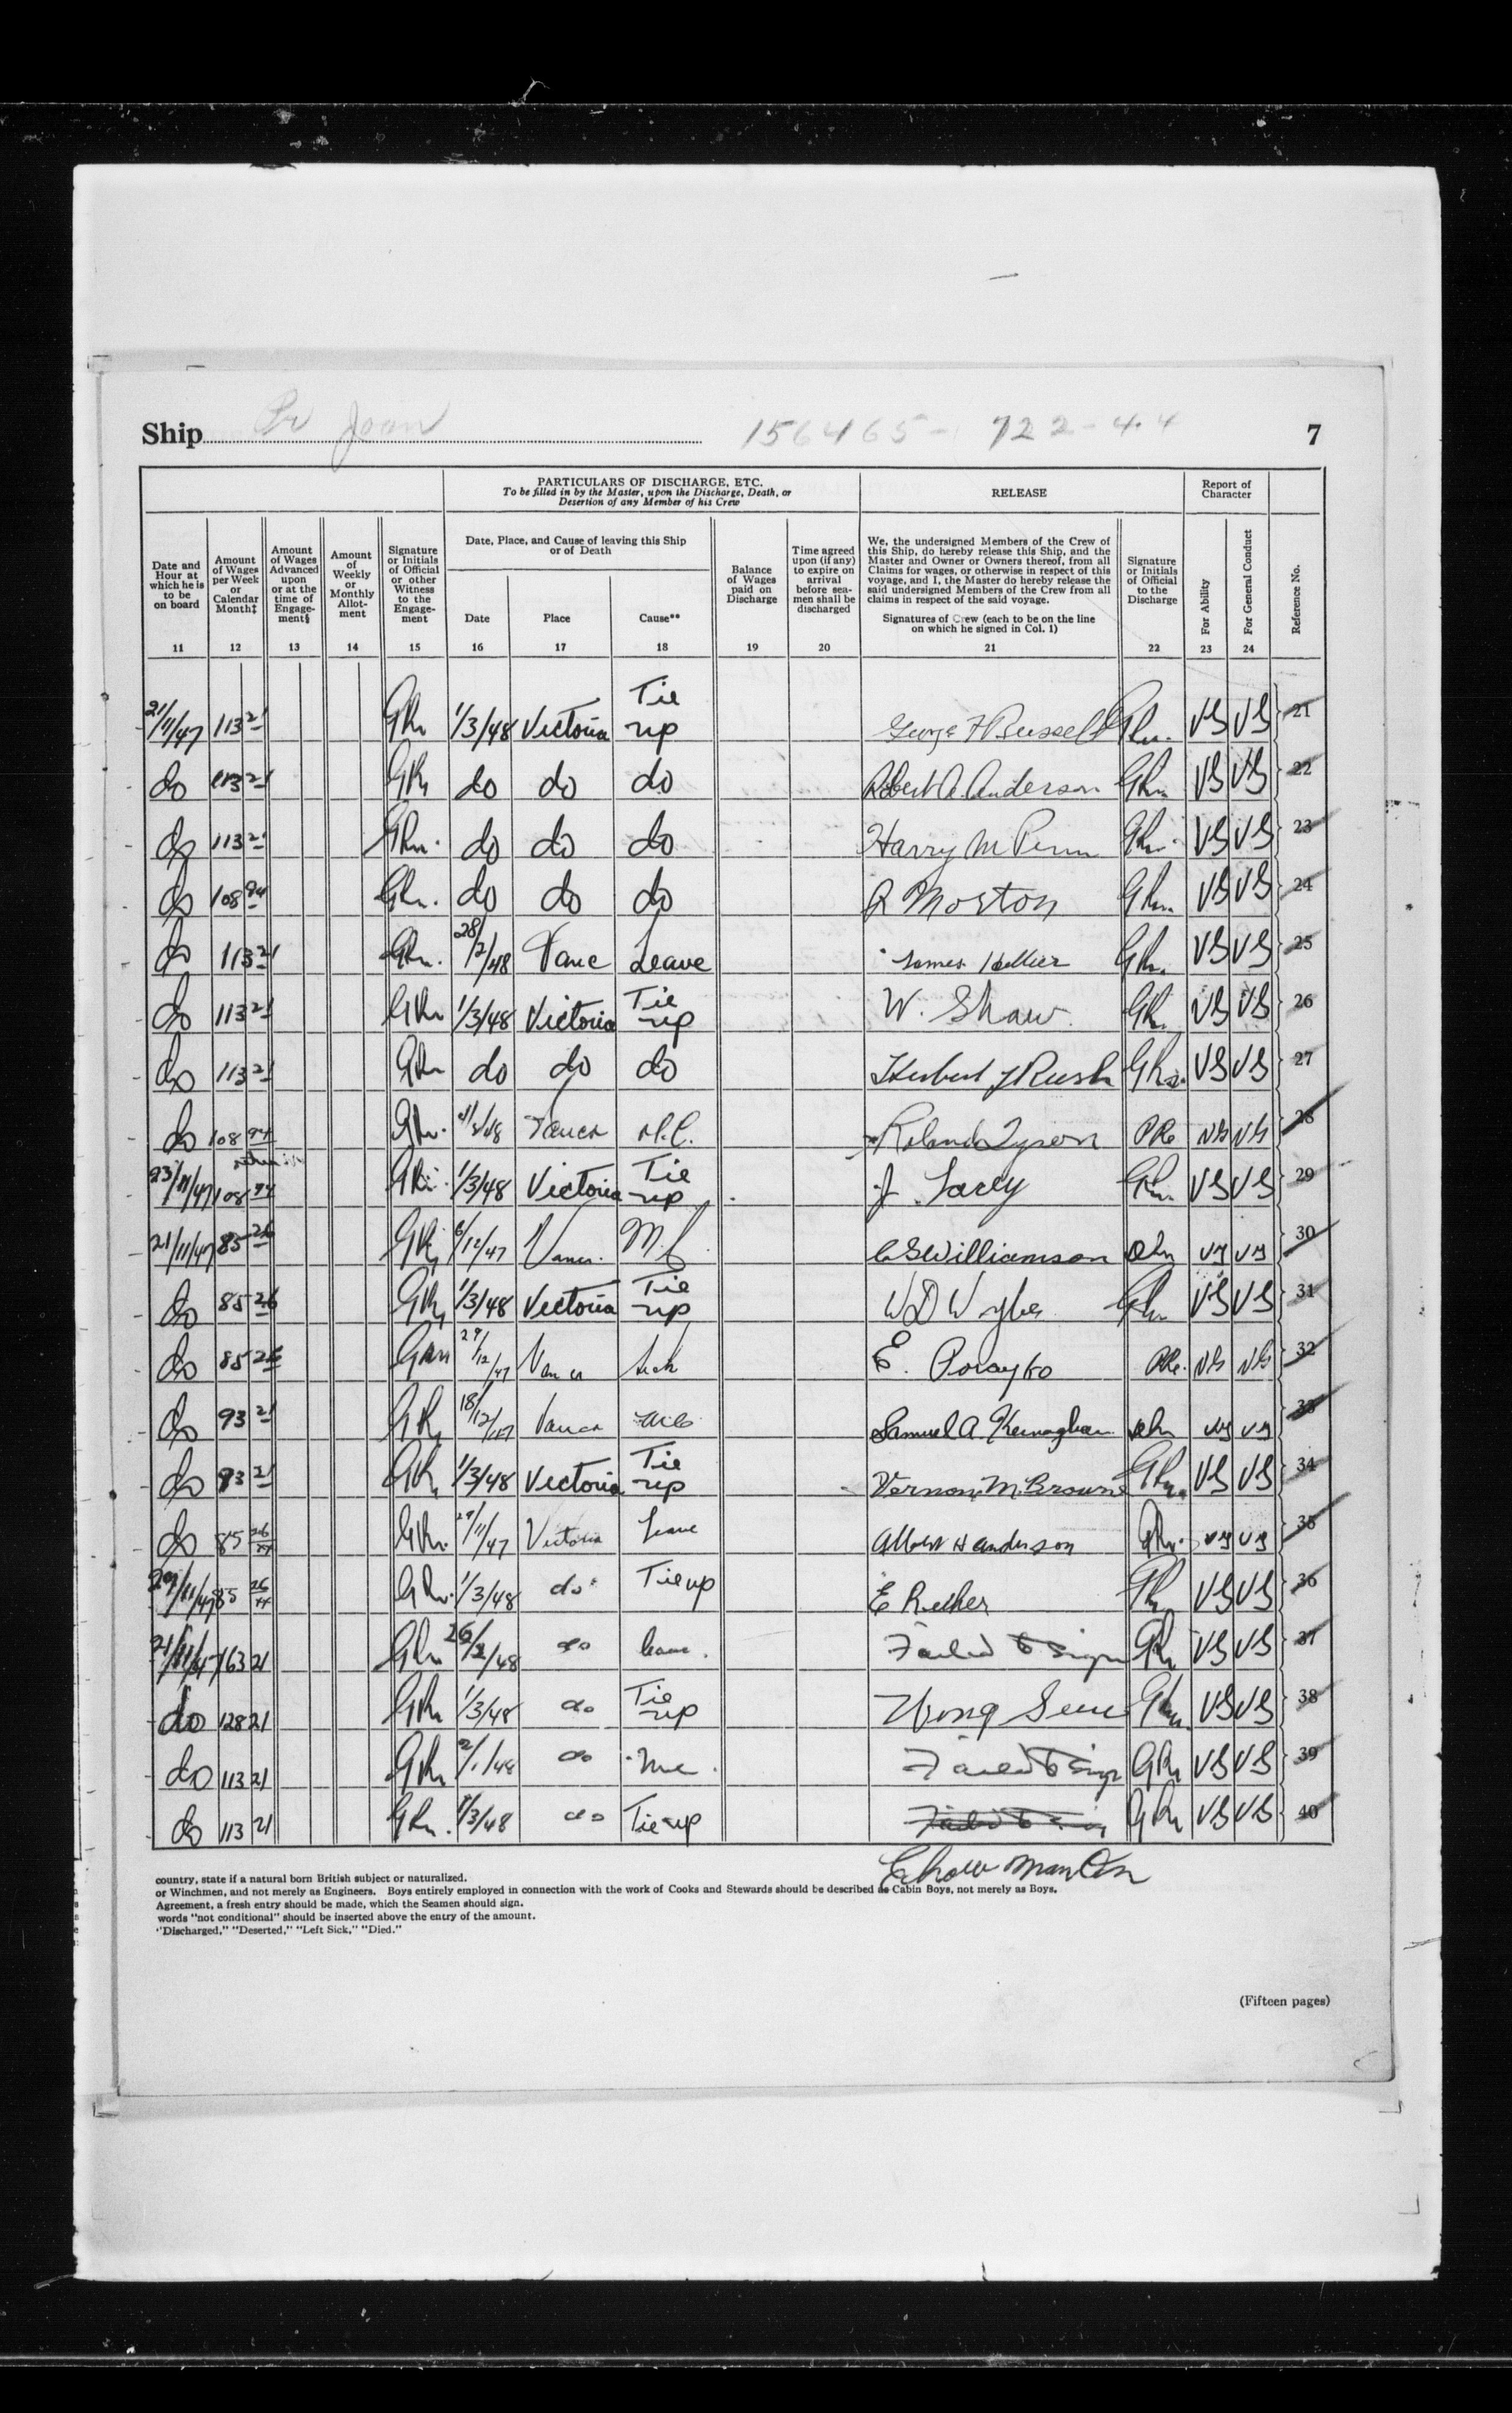 Ship Pr Joan 156465 - 722-44 7
PARTICULARS OF DISCHARGE, ETC.
To be filled in by the Master, upon the Discharge, Death, or
Desertion of any Member of his Crew
RELEASE
Report of
Character
Date and
Hour at
which he is
to be
on board
11
Amount
of Wages
per Week
or
Calendar
Month‡
12
Amount
of Wages
Advanced
upon
or at the
time of
Engage-
ment§
13
Amount
of
Weekly
or
Monthly
Allot-
ment
14
Signature
or Initials
of Official
or other
Witness
to the
Engage-
ment
15
Date, Place, and Cause of leaving this Ship
or of Death
Date
16
Place
17
Cause**
18
Balance
of Wages
paid on
Discharge
19
Time agreed
upon (if any)
to expire on
arrival
before sea-
men shall be
discharged
20
We, the undersigned Members of the Crew of
this Ship, do hereby release this Ship, and the
Master and Owner or Owners thereof, from all
Claims for wages, or otherwise in respect of this
voyage, and I, the Master do hereby release the
said undersigned Members of the Crew from all
claims in respect of the said voyage.
Signatures of Crew (each to be on the line
on which he signed in Col. 1)
21
Signature
or Initials
of Official
to the
Discharge
22
For Ability
23
For General Conduct
24
Reference No.
21/11/47 113 21 1/3/48 Victoria Tie up George F Russell VG VG 21
do 113 21 do do do Robert A. Anderson VG VG 22
do 113 21 do do do Harry M Penn VG VG 23
do 108 94 do do do R Morton VG VG 24
do 113 21 28/2/48 Vanc Leave James Hellier VG VG 25
do 113 21 1/3/48 Victoria Tie up W. Shaw VG VG 26
do 113 21 do do do Herbert J Rush VG VG 27
do 108 94 Vancr M.C. Roland Tyson VG VG 28
23/11/47 108 94 1/3/48 Victoria Tie up J. Lacey VG VG 29
21/11/47 85 26 6/12/47 Vancr. M.C. C S Williamson VG VG 30
do 85 26 1/3/48 Victoria Tie up W D Wylie VG VG 31
do 85 26 29/12/47 Vancr Sick E. Porayko VG VG 32
do 93 21 18/12/47 Vancr M.C. Samuel A. Kernaghan VG VG 33
do 93 21 1/3/48 Victoria Tie up Vernon M. Brown VG VG 34
do 85 26 29/11/47 Victoria Leave Albert H Anderson VG VG 35
29/11/47 85 26 1/3/48 do Tie up E Ruther VG VG 36
21/11/47 163 21 26/2/48 do Leave. Failed to sign VG VG 37
do 128 21 1/3/48 do Tie up Wong VG VG 38
do 113 21 2/1/48 do Failed to sign VG VG 39
do 113 21 1/3/48 do Tie up Failed to sign VG VG 40
Chow Man
country, state if a natural born British subject or naturalized.
or Winchmen, and not merely as Engineers. Boys entirely employed in connection with the work of Cooks and Stewards should be described as Cabin Boys, not merely as Boys.
Agreement, a fresh entry should be made, which the Seamen should sign.
words "not conditional" should be inserted above the entry of the amount.
"Discharged," "Deserted," "Left Sick," "Died."
(Fifteen pages)